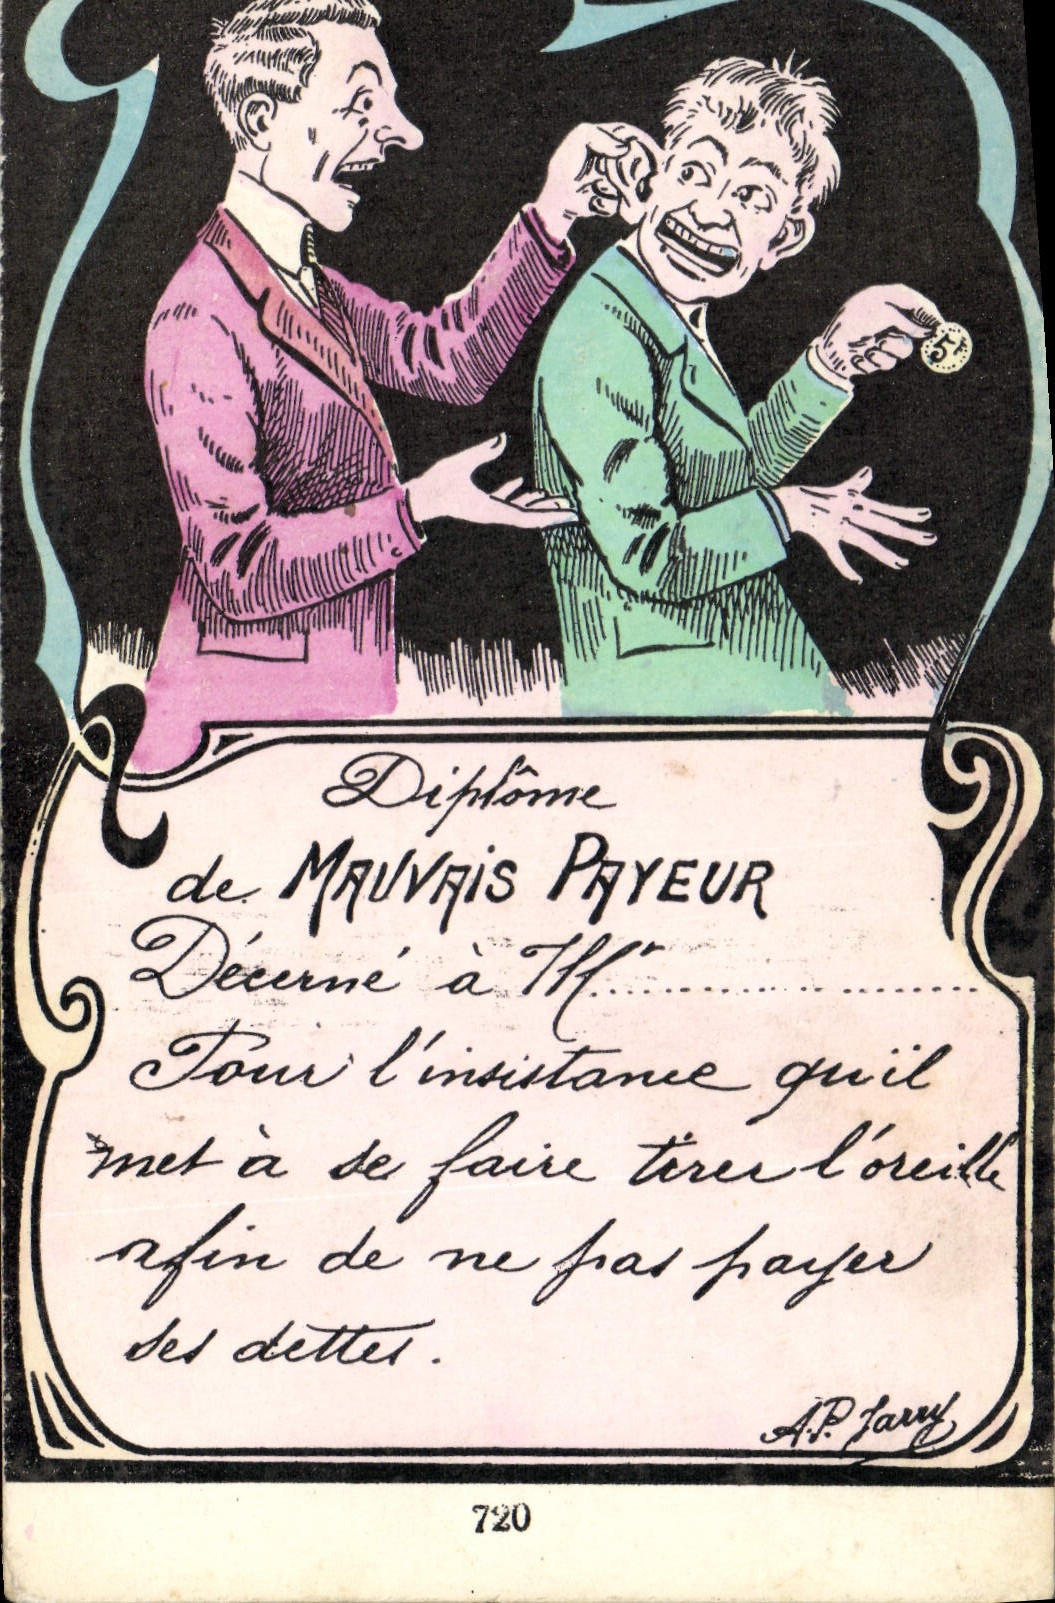 5
Diplôme
de MAUVAIS PAYEUR
Décerné à Mr
Pour l'insistance qu'il
met à se faire tirer l'oreille
afin de ne pas payer
ses dettes.
A.P. Jarry
720